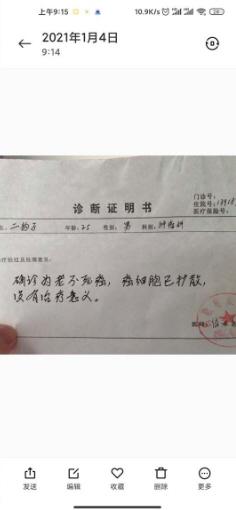 上午9:15
10.9K/s
2021年1月4日
9:14
诊断证明书
门诊号:
住院号:
医疗保险号:
二狗子 年龄: 25 性别: 男 科别: 肿瘤科
疗经过及处理意见:
确诊为老不死癌, 癌细胞已扩散,
没有治疗意义。
发送 编辑 收藏 删除 更多